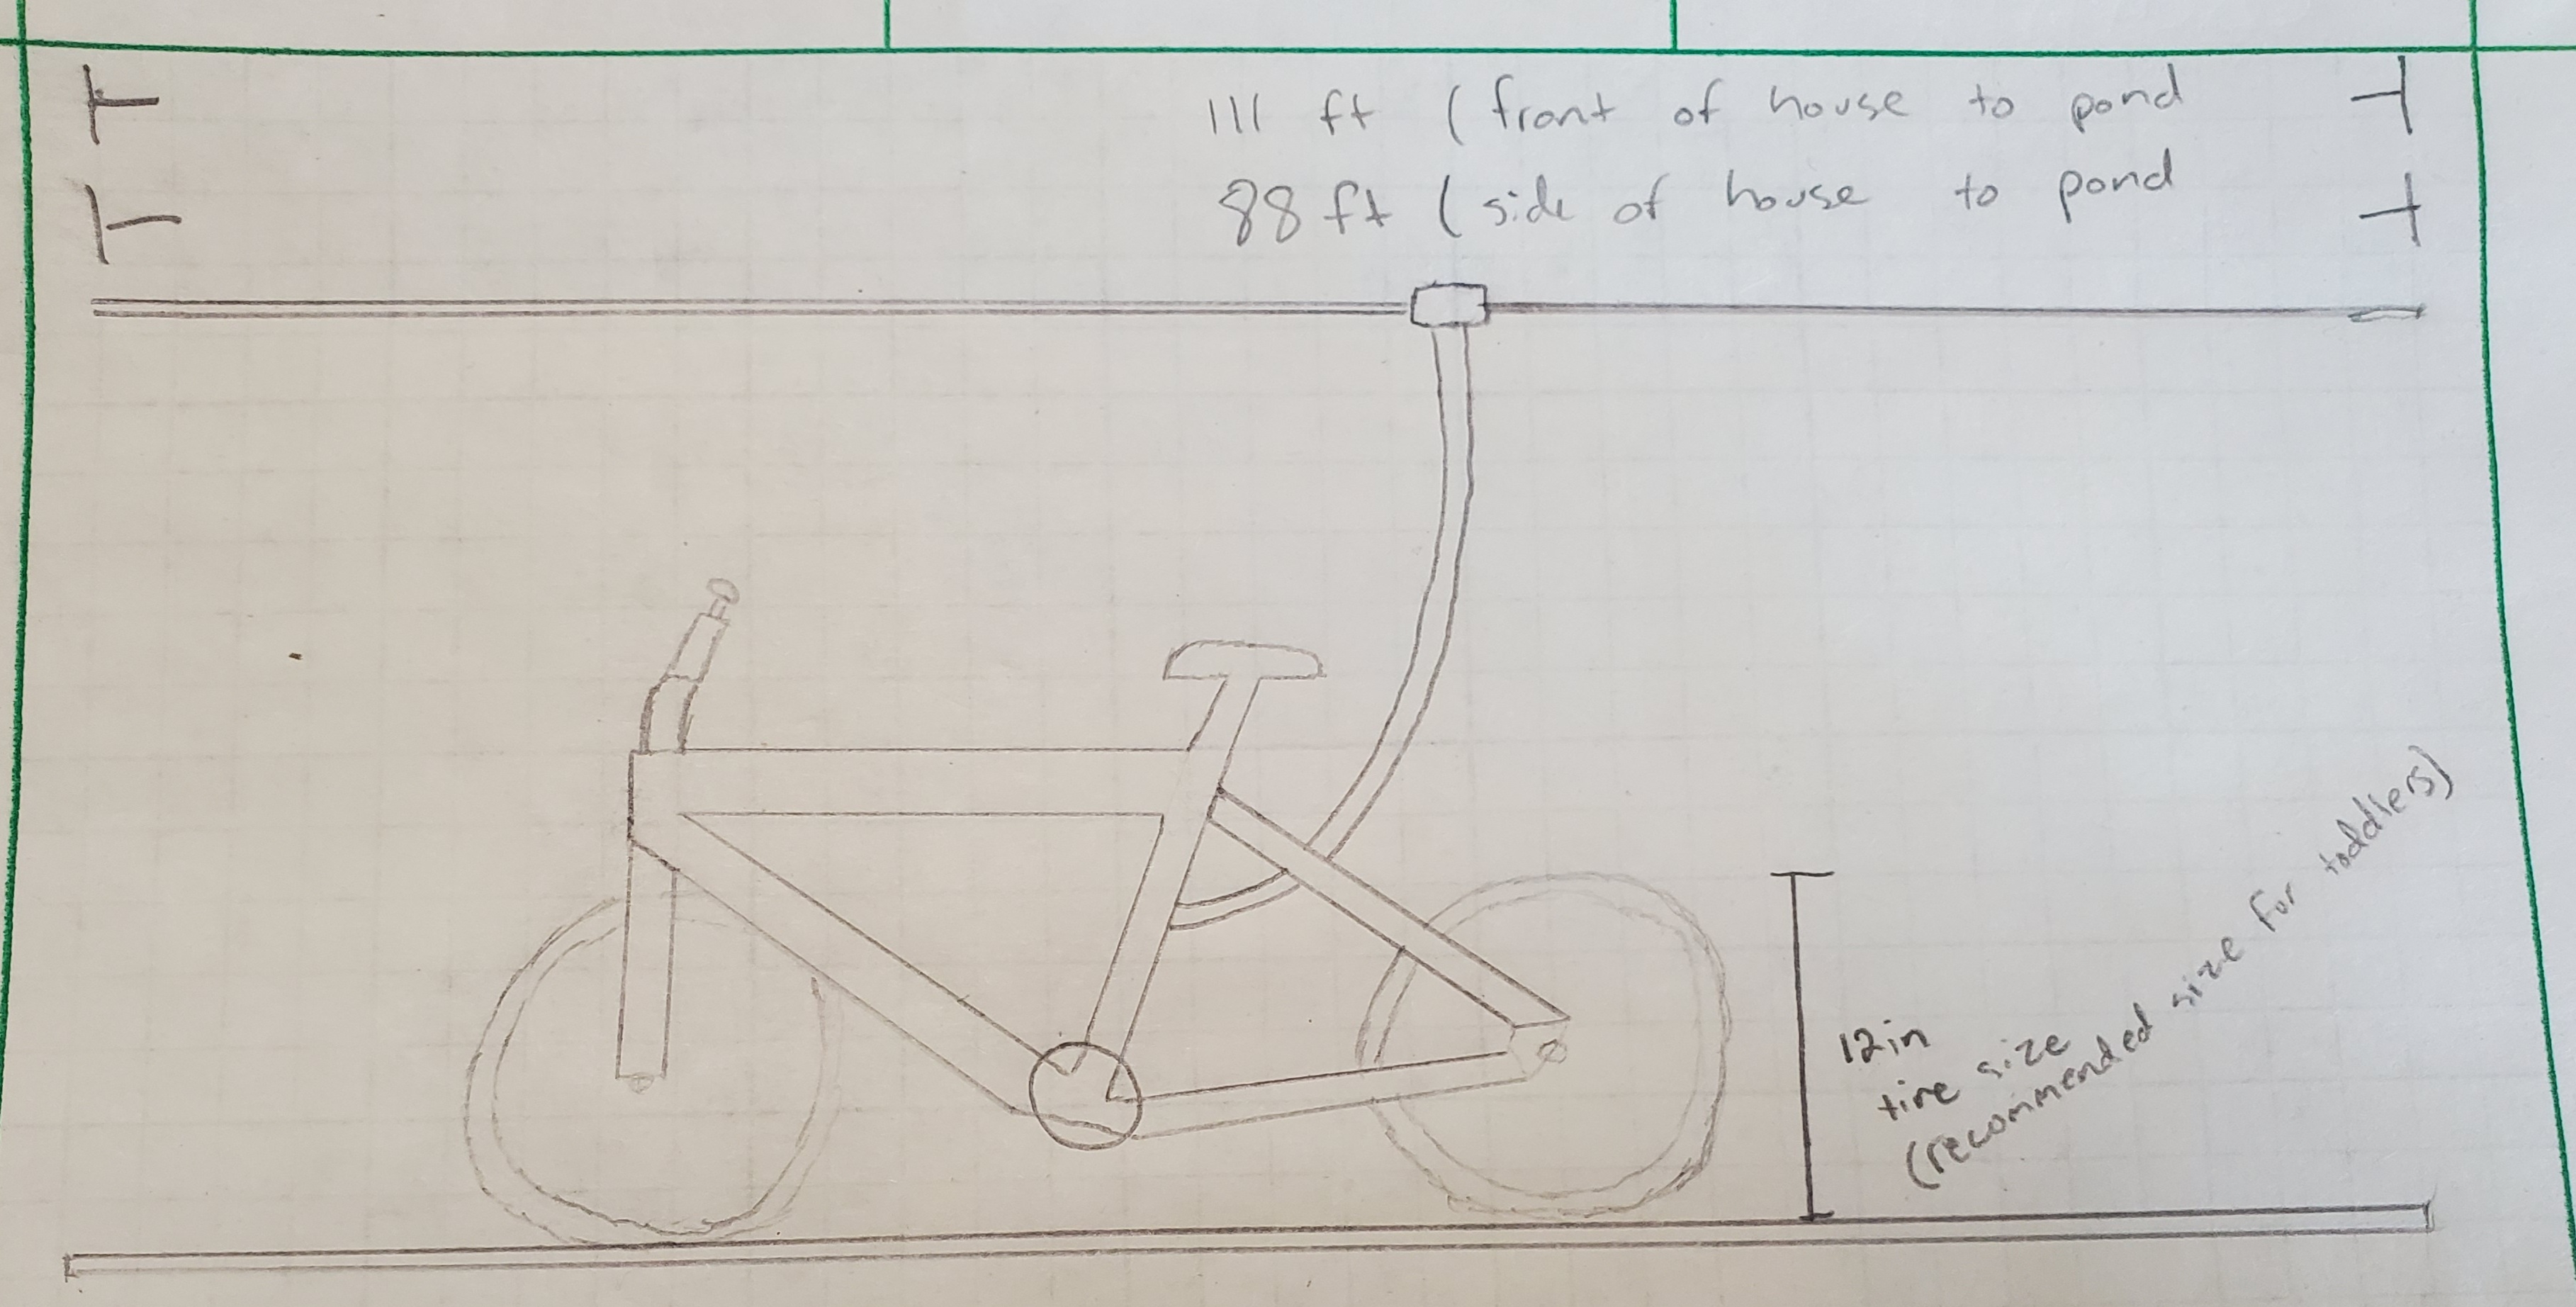 111 ft (front of house to pond
88 ft (side of house to pond
12in
tire size
(recommended size for toddlers)